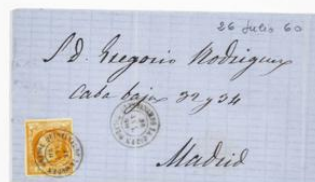 26 Julio 60
S. D. Gregorio Rodriguez
Caba baja 32 y 34
Madrid